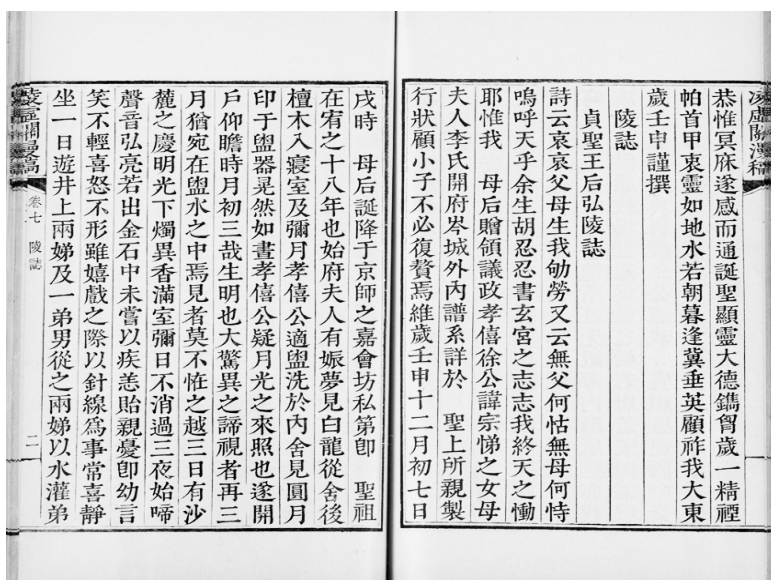 凌虛關漫稿
恭惟冥庥遂感而通誕聖顯靈大德鐫胷歲一精禋
帕首甲衷靈如地水若朝暮逢冀垂英顧祚我大東
歲壬申謹撰
陵誌
貞聖王后弘陵誌
詩云哀哀父母生我劬勞又云無父何怙無母何恃
嗚呼天乎余生胡忍忍書玄宮之志志我終天之慟
耶惟我 母后贈領議政孝僖徐公諱宗悌之女母
夫人李氏開府岑城外內譜系詳於 聖上所親製
行狀顧小子不必復贅焉維歲壬申十二月初七日
戌時 母后誕降于京師之嘉會坊私第卽 聖祖
在宥之十八年也始府夫人有娠夢見白龍從舍後
檀木入寢室及彌月孝僖公適盥洗於內舍見圓月
印于盥器晃然如晝孝僖公疑月光之來照也遂開
戶仰瞻時月初三哉生明也大驚異之諦視者再三
月猶宛在盥水之中焉見者莫不恠之越三日有沙
麓之慶明光下燭異香滿室彌日不消過三夜始啼
聲音弘亮若出金石中未嘗以疾恙貽親憂卽幼言
笑不輕喜怒不形雖嬉戲之際以針線爲事常喜靜
坐一日遊井上兩娣及一弟男從之兩娣以水灌弟
凌虛關漫稿 卷七 陵誌 二